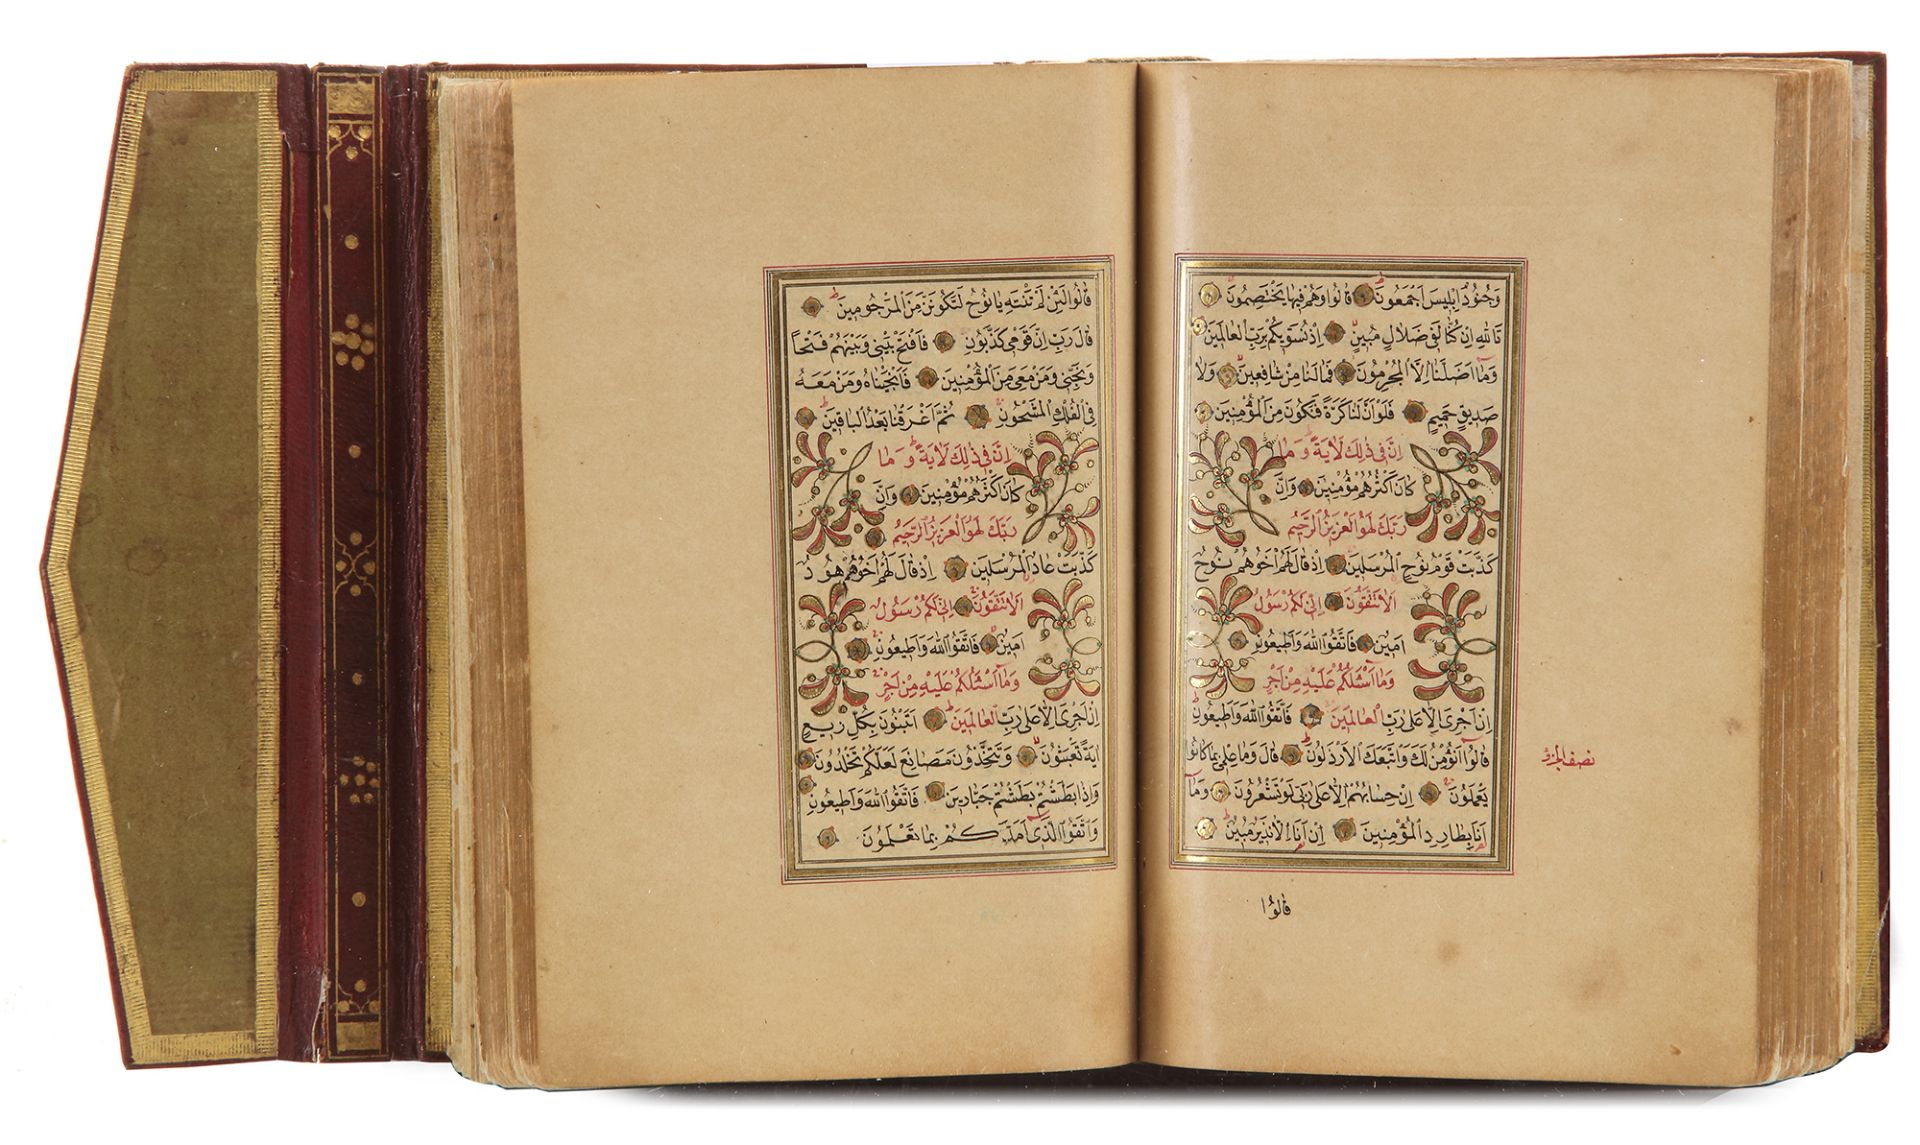 وَجُنُودُ اِبْلِيسَ اَجْمَعُونَ قَالُوا وَهُمْ فِيهَا يَخْتَصِمُونَ
تَاللّٰهِ اِنْ كُنَّا لَفِى ضَلَالٍ مُبِينٍ اِذْ نُسَوِّيكُمْ بِرَبِّ الْعَالَمِينَ
وَمَا اَضَلَّنَا اِلَّا الْمُجْرِمُونَ فَمَا لَنَا مِنْ شَافِعِينَ وَلَا
صَدِيقٍ حَمِيمٍ فَلَوْ اَنَّ لَنَا كَرَّةً فَنَكُونَ مِنَ الْمُؤْمِنِينَ
اِنَّ فِى ذٰلِكَ لَاٰيَةً وَمَا
كَانَ اَكْثَرُهُمْ مُؤْمِنِينَ وَاِنَّ
رَبَّكَ لَهُوَ الْعَزِيزُ الرَّحِيمُ
كَذَّبَتْ قَوْمُ نُوحٍ الْمُرْسَلِينَ اِذْ قَالَ لَهُمْ اَخُوهُمْ نُوحٌ
اَلَا تَتَّقُونَ اِنِّى لَكُمْ رَسُولٌ
اَمِينٌ فَاتَّقُوا اللّٰهَ وَاَطِيعُونِ
وَمَا اَسْئَلُكُمْ عَلَيْهِ مِنْ اَجْرٍ
اِنْ اَجْرِىَ اِلَّا عَلٰى رَبِّ الْعَالَمِينَ فَاتَّقُوا اللّٰهَ وَاَطِيعُونِ
قَالُوا اَنُؤْمِنُ لَكَ وَاتَّبَعَكَ الْاَرْذَلُونَ قَالَ وَمَا عِلْمِى بِمَا كَانُوا
نصف الجزؤ
يَعْمَلُونَ اِنْ حِسَابُهُمْ اِلَّا عَلٰى رَبِّى لَوْ تَشْعُرُونَ وَمَا
اَنَا بِطَارِدِ الْمُؤْمِنِينَ اِنْ اَنَا اِلَّا نَذِيرٌ مُبِينٌ
قَالُوا
قَالُوا لَئِنْ لَمْ تَنْتَهِ يَا نُوحُ لَتَكُونَنَّ مِنَ الْمَرْجُومِينَ
قَالَ رَبِّ اِنَّ قَوْمِى كَذَّبُونِ فَافْتَحْ بَيْنِى وَبَيْنَهُمْ فَتْحًا
وَنَجِّنِى وَمَنْ مَعِىَ مِنَ الْمُؤْمِنِينَ فَاَنْجَيْنَاهُ وَمَنْ مَعَهُ
فِى الْفُلْكِ الْمَشْحُونِ ثُمَّ اَغْرَقْنَا بَعْدُ الْبَاقِينَ
اِنَّ فِى ذٰلِكَ لَاٰيَةً وَمَا
كَانَ اَكْثَرُهُمْ مُؤْمِنِينَ وَاِنَّ
رَبَّكَ لَهُوَ الْعَزِيزُ الرَّحِيمُ
كَذَّبَتْ عَادٌ الْمُرْسَلِينَ اِذْ قَالَ لَهُمْ اَخُوهُمْ هُودٌ
اَلَا تَتَّقُونَ اِنِّى لَكُمْ رَسُولٌ
اَمِينٌ فَاتَّقُوا اللّٰهَ وَاَطِيعُونِ
وَمَا اَسْئَلُكُمْ عَلَيْهِ مِنْ اَجْرٍ
اِنْ اَجْرِىَ اِلَّا عَلٰى رَبِّ الْعَالَمِينَ اَتَبْنُونَ بِكُلِّ رِيعٍ
اٰيَةً تَعْبَثُونَ وَتَتَّخِذُونَ مَصَانِعَ لَعَلَّكُمْ تَخْلُدُونَ
وَاِذَا بَطَشْتُمْ بَطَشْتُمْ جَبَّارِينَ فَاتَّقُوا اللّٰهَ وَاَطِيعُونِ
وَاتَّقُوا الَّذِى اَمَدَّكُمْ بِمَا تَعْلَمُونَ